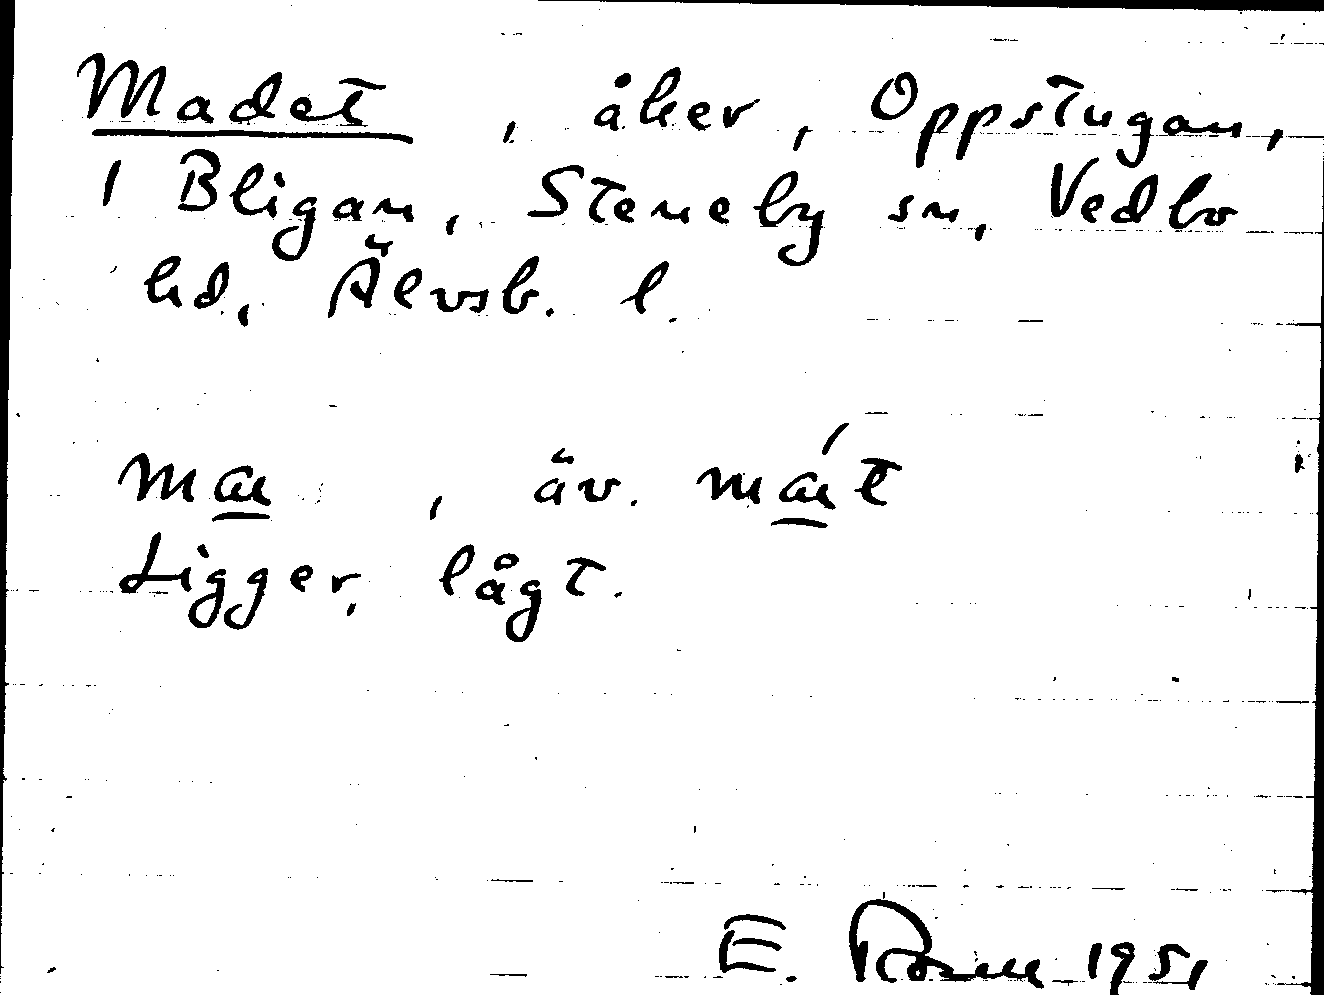 Madet, åker, Oppstugan,
1 Bligan, Steneby sn, Vedbo
hd, Älvsb. l.
mau, äv. máut
Ligger lågt.
E. Rosell 1951